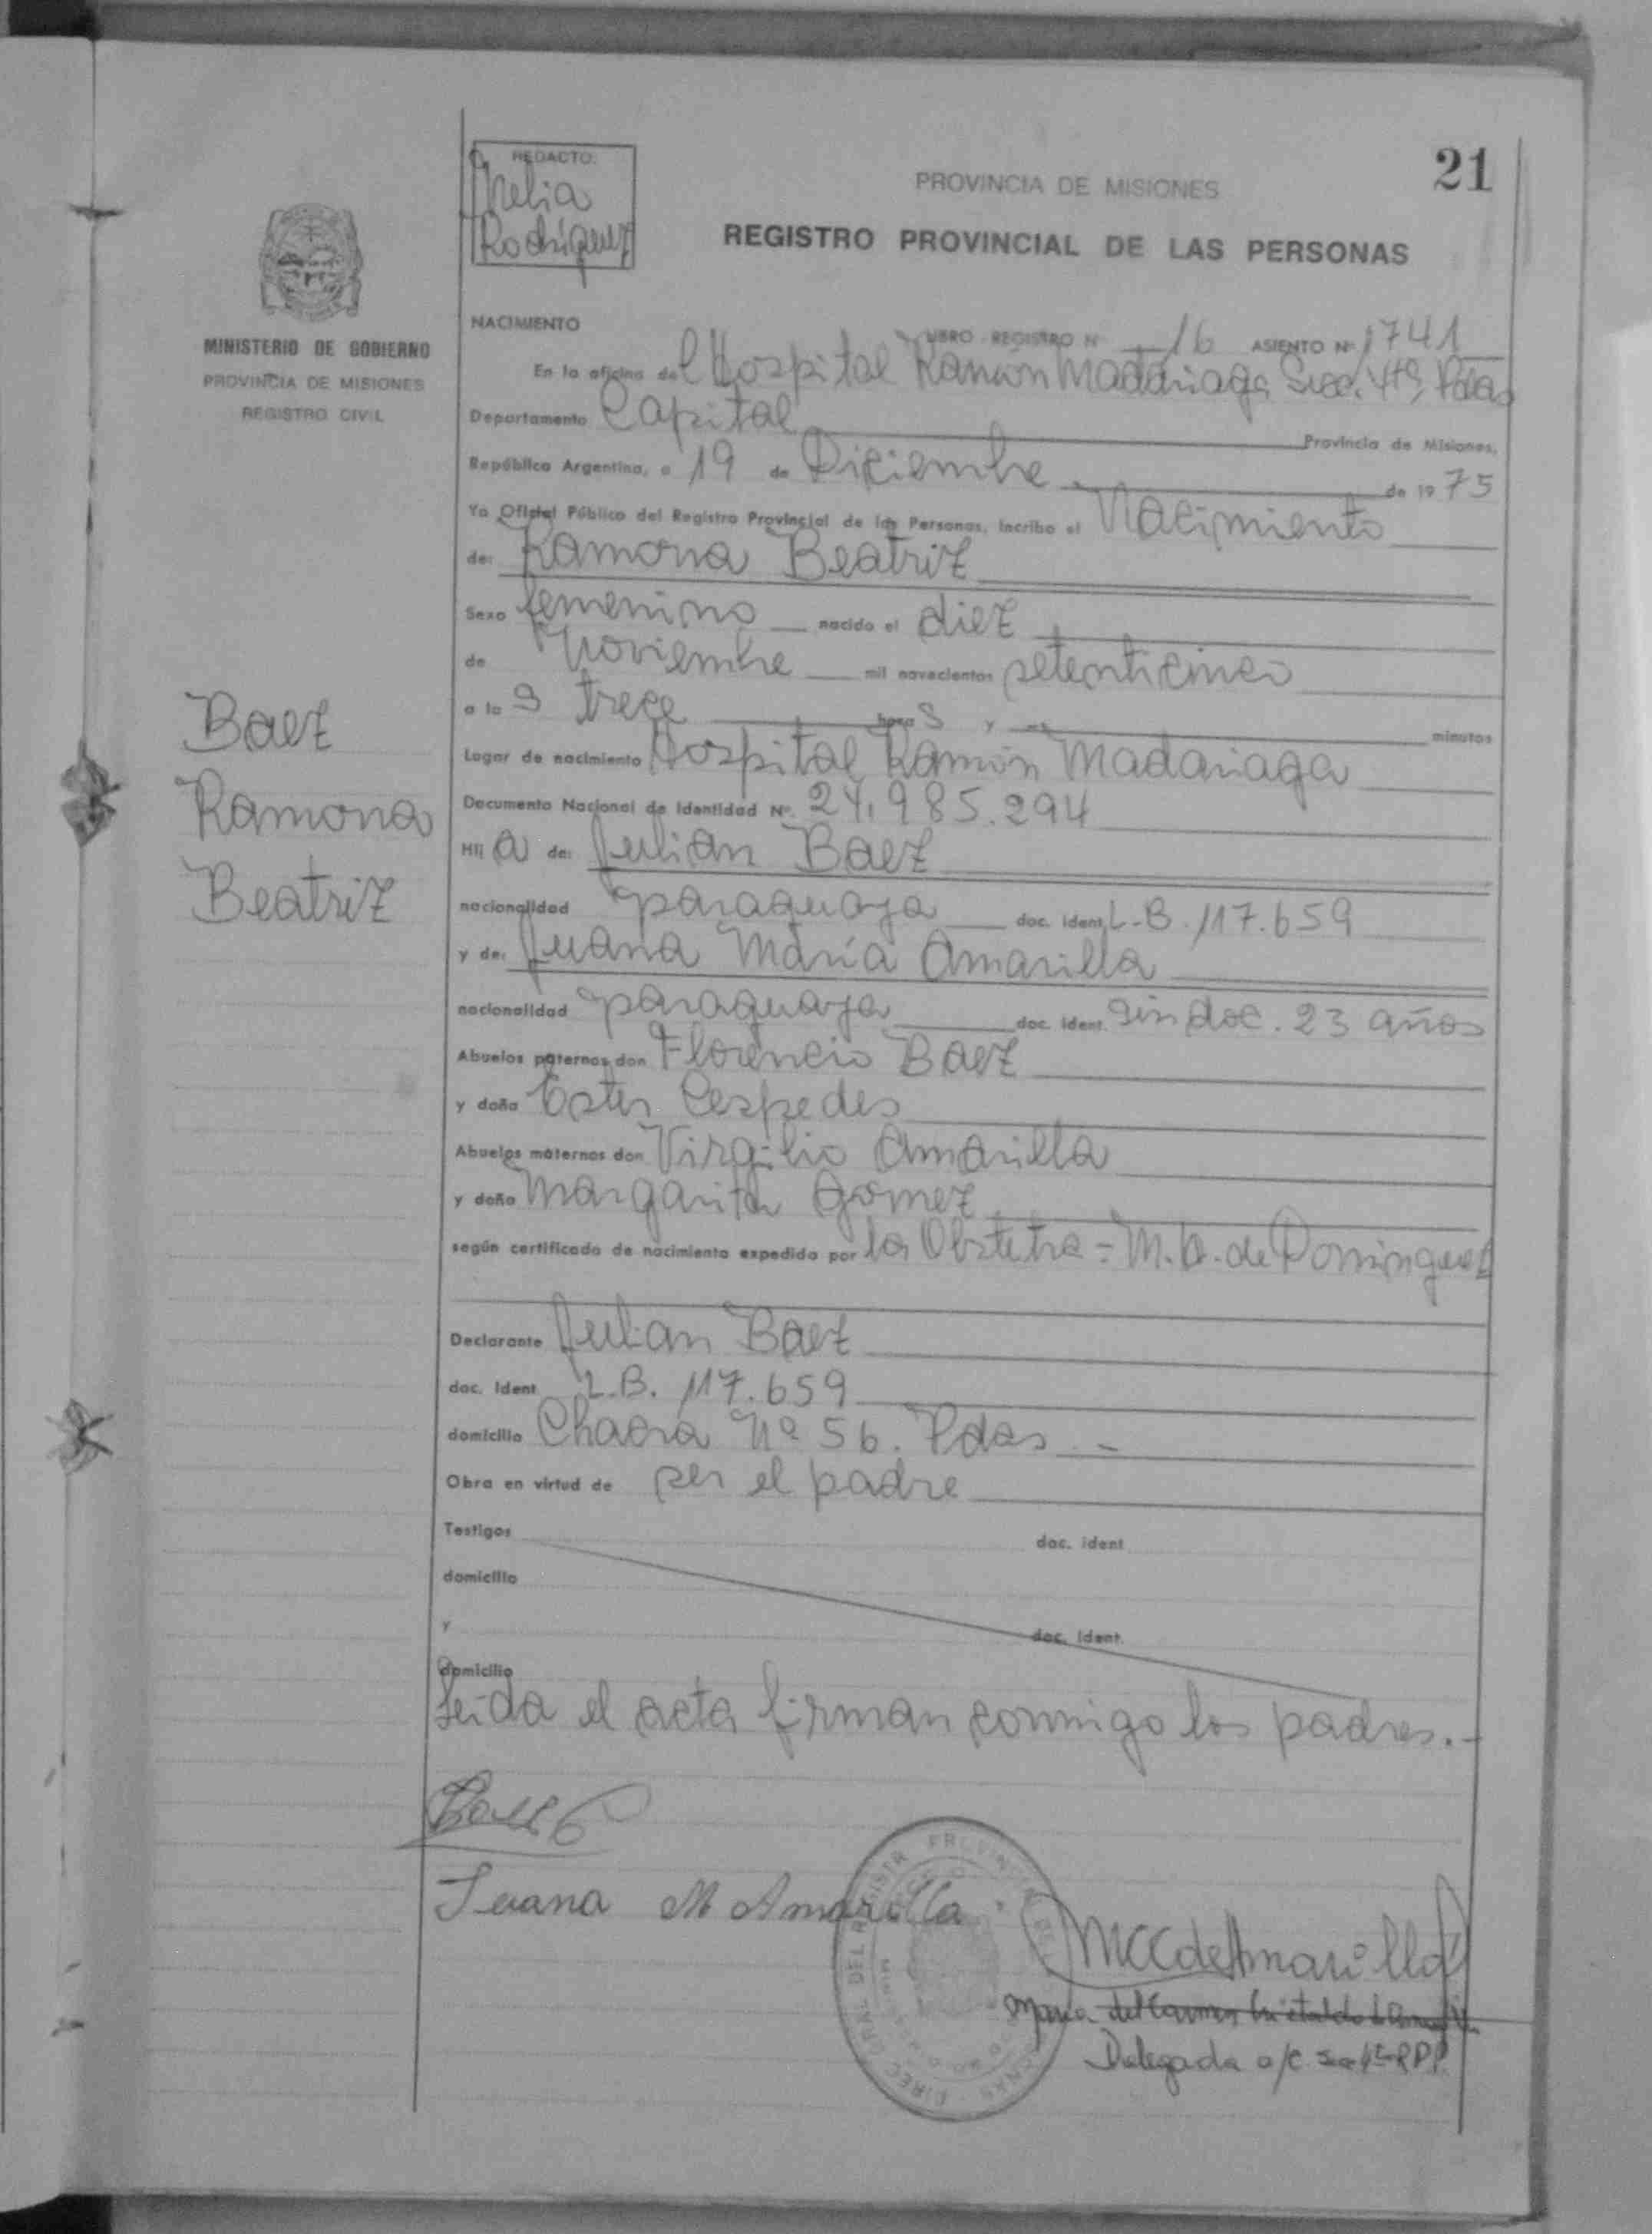 21
REDACTO:
Rodriguez
PROVINCIA DE MISIONES
REGISTRO PROVINCIAL DE LAS PERSONAS
MINISTERIO DE GOBIERNO
PROVINCIA DE MISIONES
REGISTRO CIVIL
NACIMIENTO
LIBRO - REGISTRO Nº 16 ASIENTO Nº 1741
En la oficina del Hospital Ramón Madariaga Secc. 4ta, Pdas
Departamento Capital Provincia de Misiones,
República Argentina, a 19 de Diciembre de 1975
Yo Oficial Público del Registro Provincial de las Personas, incribo el Nacimiento
de: Ramona Beatriz
Sexo femenino nacido el diez
de Noviembre mil novecientos setenticinco
a las trece horas y -- minutos
Lugar de nacimiento Hospital Ramón Madariaga
Documento Nacional de Identidad Nº. 24.985.294
Hija de: Julian Baez
nacionalidad paraguaya doc. ident. L-B. 117.659
y de: Juana María Amarilla
nacionalidad paraguaya doc. ident. sin doc. 23 años
Abuelos paternos don Florencio Baez
y doña Ester Cespedes
Abuelos maternos don Virgilio Amarilla
y doña Margarita Gomez
según certificado de nacimiento expedido por la Obstetra = M. de Dominguez
Declarante Julian Baez
doc. Ident L.B. 117.659
domicilio Chacra Nº 56. Pdas -
Obra en virtud de ser el padre
Testigos doc. ident
domicilio
y doc. ident.
domicilio
Leida el acta firman conmigo los padres.-
Baez
Ramona
Beatriz
Baez
Juana M Amarilla
MCCdeAmarilla
Maria del Carmen
Delegada a/c Sec 4ª RPP.